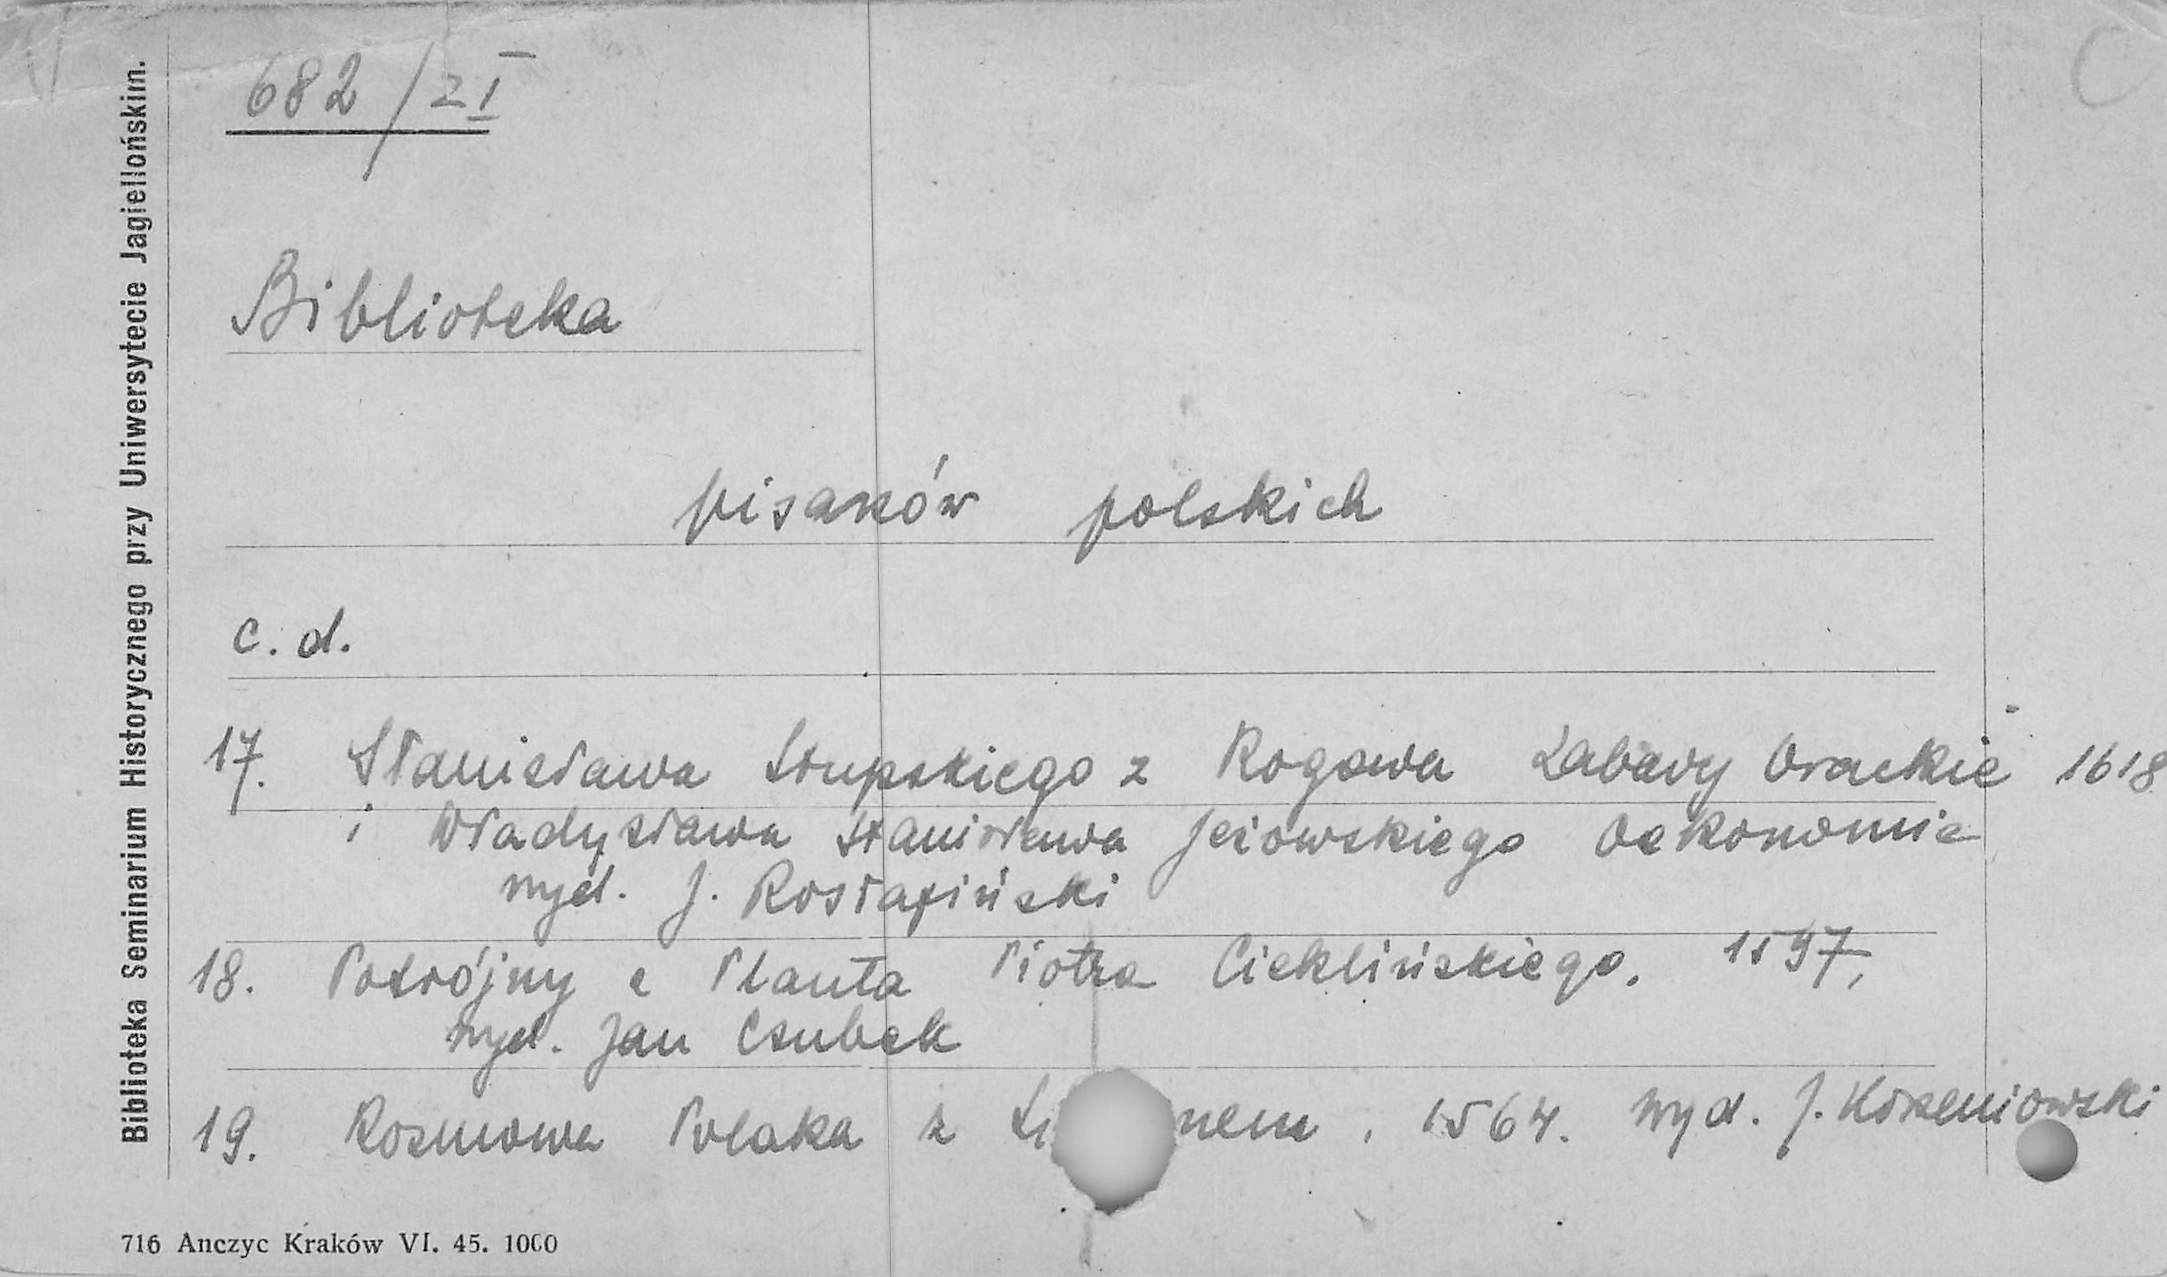 682/z I
Biblioteka
pisarzów polskich
c. d.
17. Stanisława Słupskiego z Rogowa Zabawy Orackie 1618
i Władysława Stanisława Jeżowskiego Oekonomia
wyd. J. Rostafiński
18. Potrójny z Plauta Piotra Cieklińskiego. 1597,
wyd. Jan Czubek
19. Rozmowa Polaka z Li nem. 1564. wyd. J. Korzeniowski
Biblioteka Seminarium Historycznego przy Uniwersytecie Jagiellońskim.
716 Anczyc Kraków VI. 45. 1000